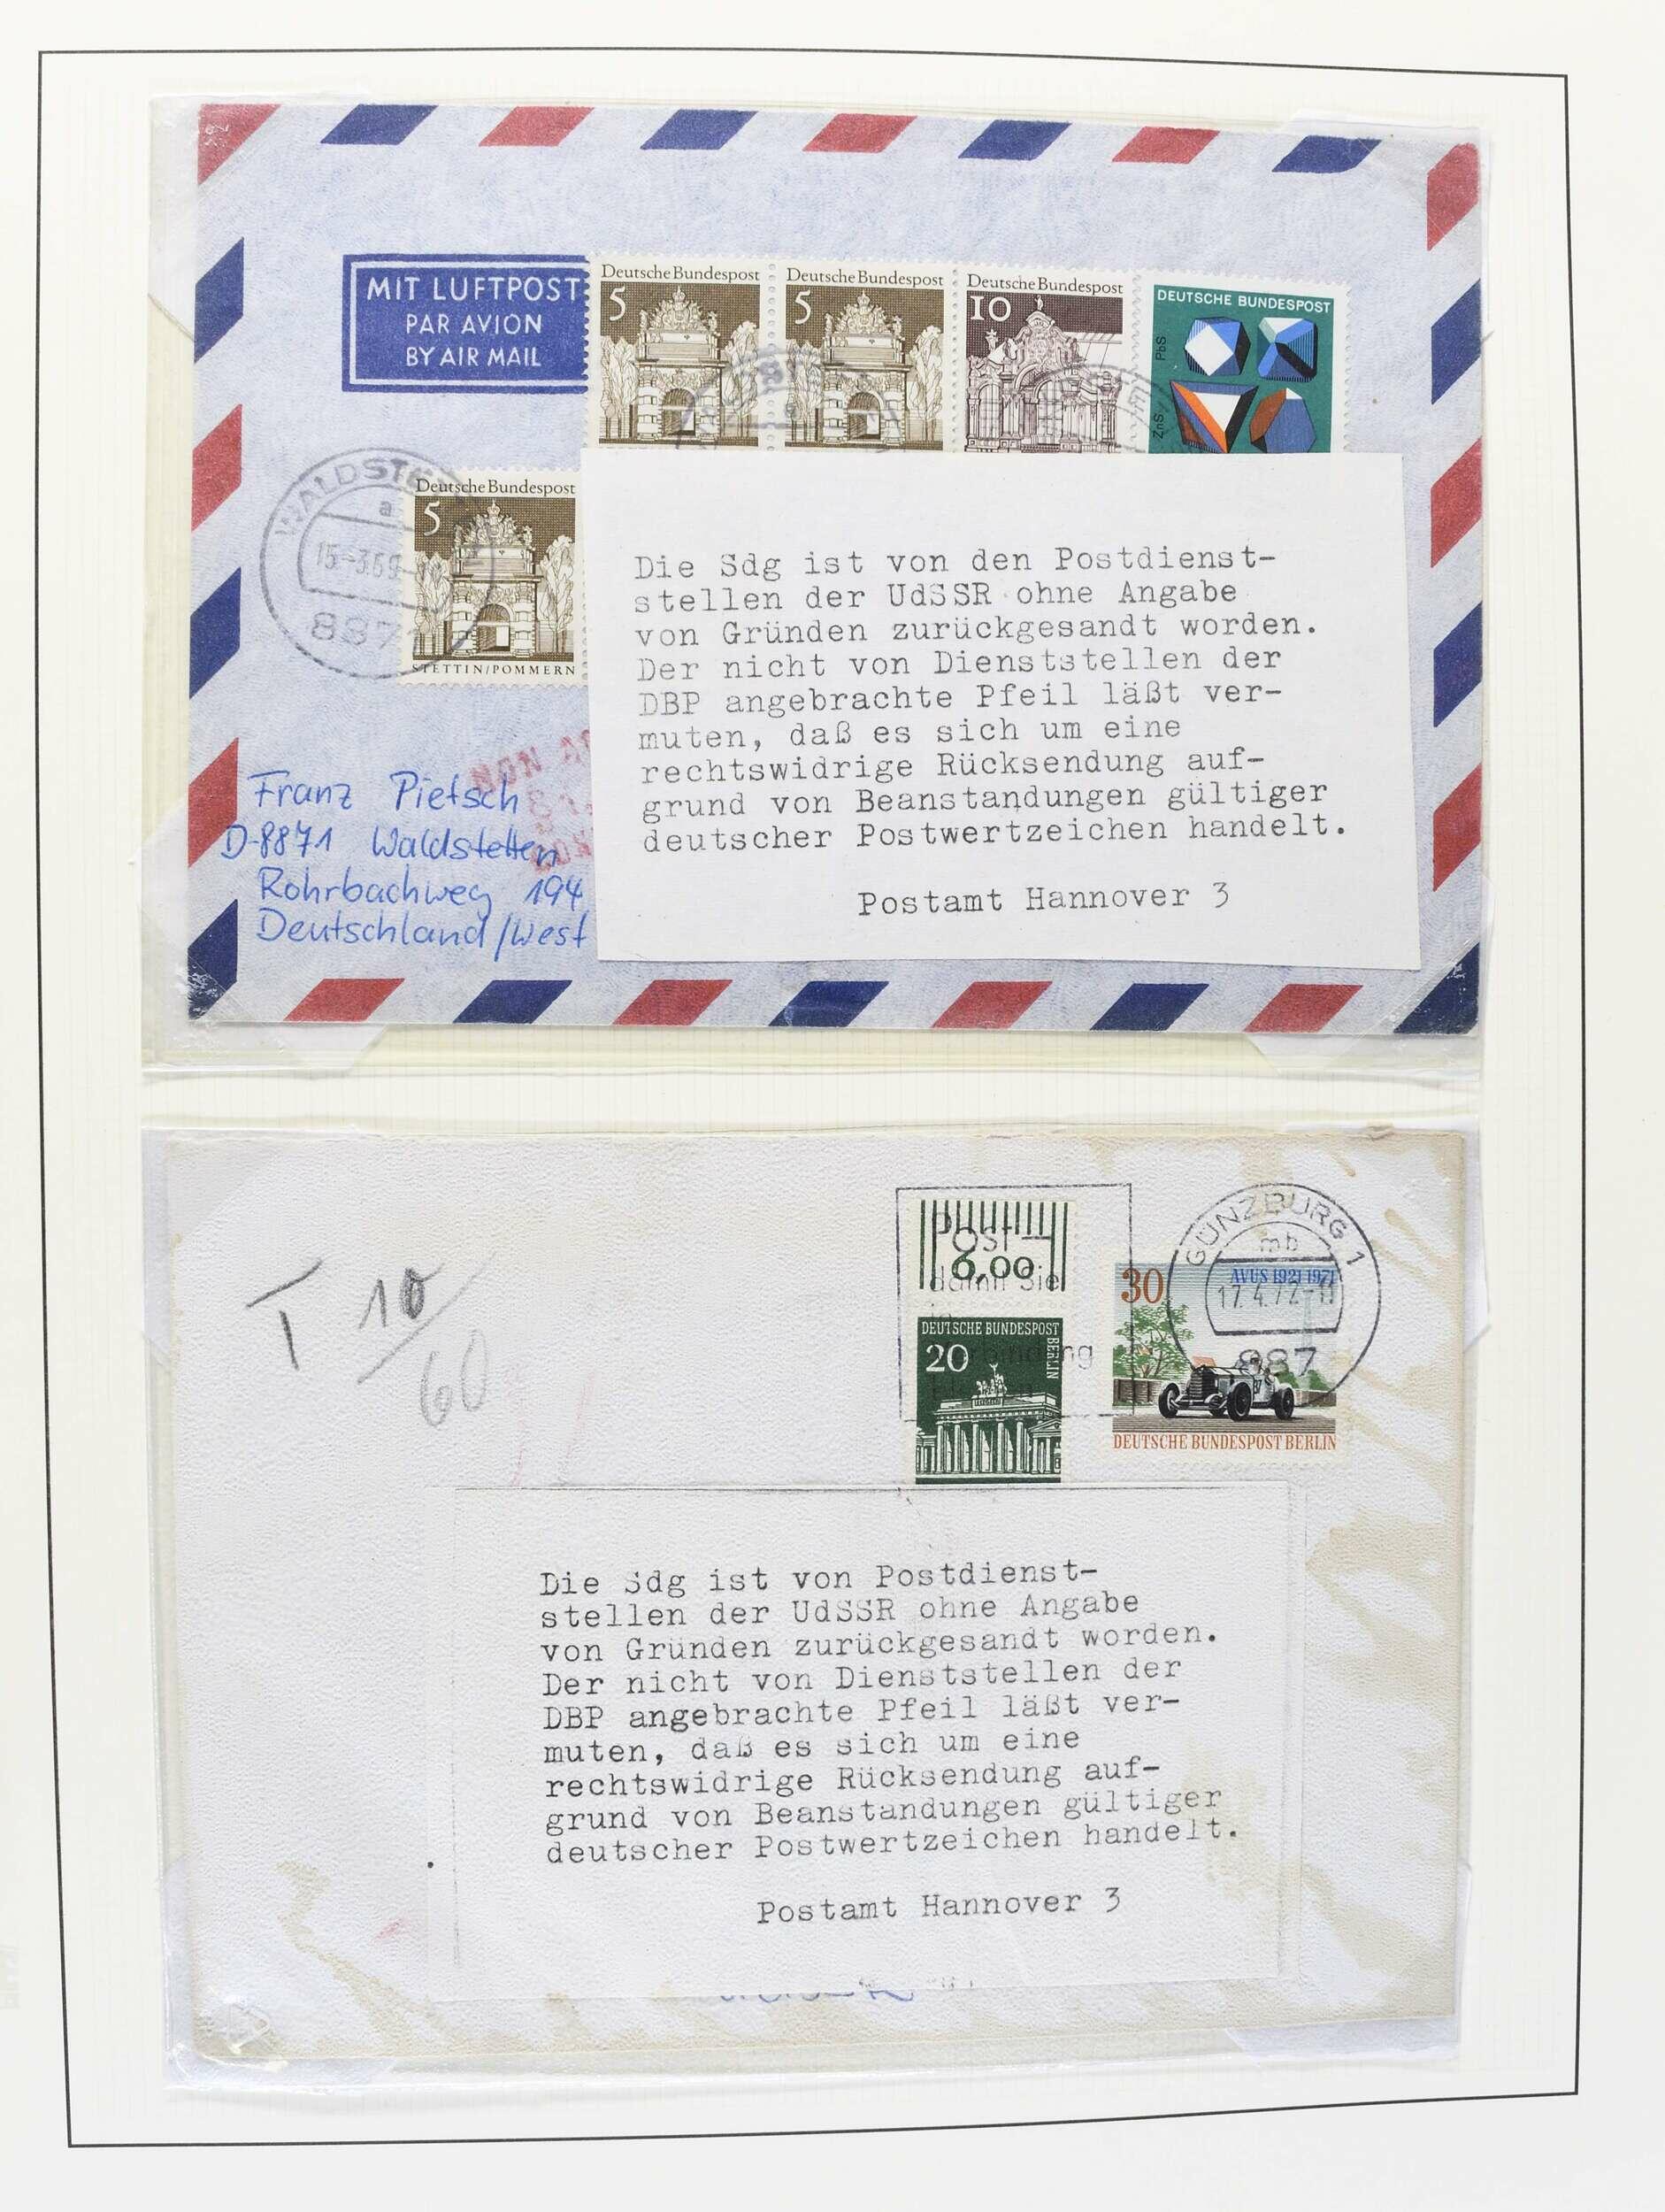 MIT LUFTPOST
PAR AVION
BY AIR MAIL
Deutsche Bundespost
5
Deutsche Bundespost
5
Deutsche Bundespost
10
DEUTSCHE BUNDESPOST
PbS
ZnS
WALDSTE
a
15.-3.69.-
8871
Deutsche Bundespost
5
STETTIN/POMMERN
NON
Franz Pietsch
D-8871 Waldstetten
Rohrbachweg 194
Deutschland/West
Die Sdg ist von den Postdienst-
stellen der UdSSR ohne Angabe
von Gründen zurückgesandt worden.
Der nicht von Dienststellen der
DBP angebrachte Pfeil läßt ver-
muten, daß es sich um eine
rechtswidrige Rücksendung auf-
grund von Beanstandungen gültiger
deutscher Postwertzeichen handelt.
Postamt Hannover 3
T 10
60
Post –
damit Sie
6,00
DEUTSCHE BUNDESPOST
BERLIN
20
GÜNZBURG 1
mb
17.4.72-11
887
30
AVUS 1921 1971
DEUTSCHE BUNDESPOST BERLIN
Die Sdg ist von Postdienst-
stellen der UdSSR ohne Angabe
von Gründen zurückgesandt worden.
Der nicht von Dienststellen der
DBP angebrachte Pfeil läßt ver-
muten, daß es sich um eine
rechtswidrige Rücksendung auf-
grund von Beanstandungen gültiger
deutscher Postwertzeichen handelt.
Postamt Hannover 3